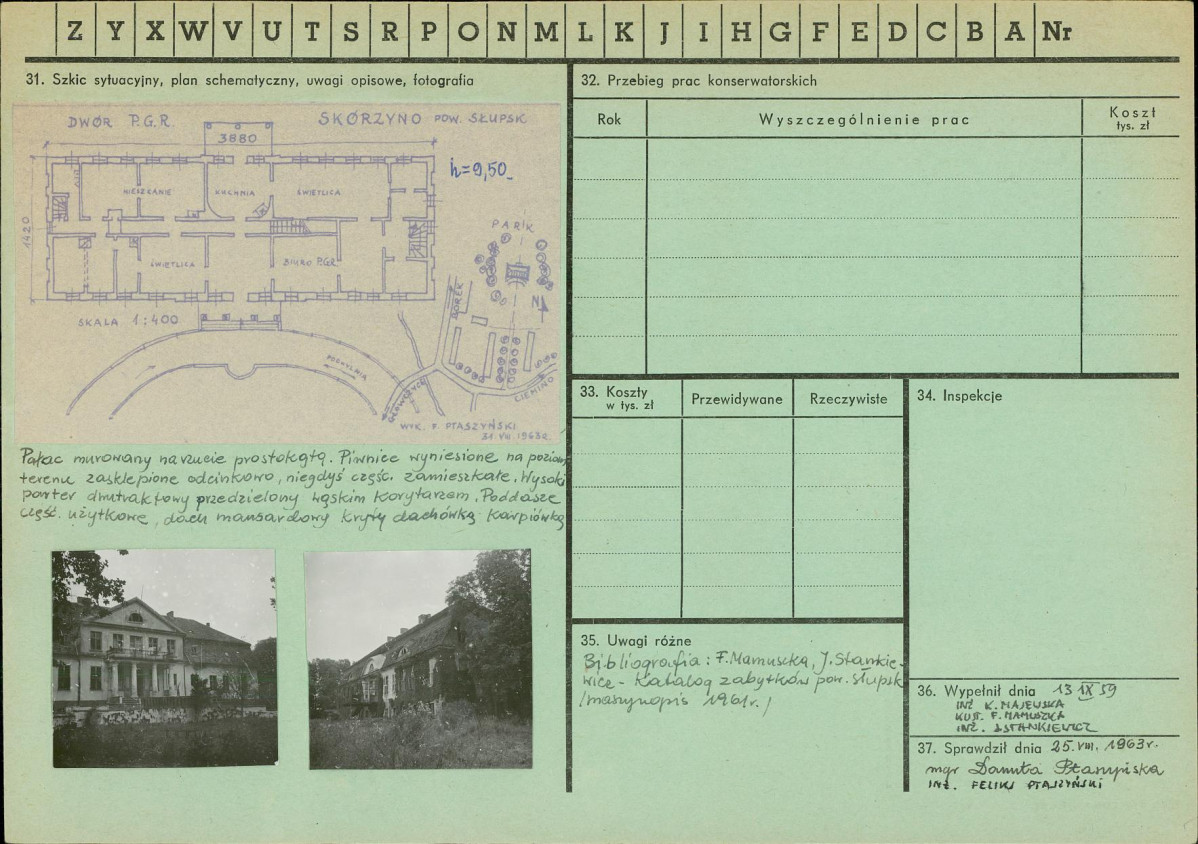 Z Y X W V U T S R P O N M L K J I H G F E D C B A Nr
31. Szkic sytuacyjny, plan schematyczny, uwagi opisowe, fotografia
DWÓR P.G.R. SKÓRZYNO POW. SŁUPSK
3880
h=9,50
1420
MIESZKANIE KUCHNIA ŚWIETLICA
ŚWIETLICA BIURO P.G.R.
PARK
N
SKALA 1:400
PODWYLNIA
GŁÓWCZYCE
CIEMINO
WYK. F. PTASZYŃSKI
31.VIII.1963r.
Pałac murowany na rzucie prostokąta. Piwnice wyniesione na poziom
terenu zasklepione odcinkowo, niegdyś częśc. zamieszkałe. Wysoki
parter dwutraktowy przedzielony wąskim korytarzem. Poddasze
częśc. użytkowe, dach mansardowy kryty dachówką karpiówką
32. Przebieg prac konserwatorskich
Rok Wyszczególnienie prac Koszt
tys. zł
33. Koszty
w tys. zł
Przewidywane Rzeczywiste
34. Inspekcje
35. Uwagi różne
Bibliografia: F. Mamuszka, J. Stankie-
wicz - Katalog zabytków pow. słupsk
/maszynopis 1961r./
36. Wypełnił dnia 13 IX 59
INŻ K. MAJEWSKA
KUST. F. MAMUSZKA
INŻ. J. STANKIEWICZ
37. Sprawdził dnia 25.VIII.1963r.
mgr Danuta
INŻ. FELIKS PTASZYŃSKI